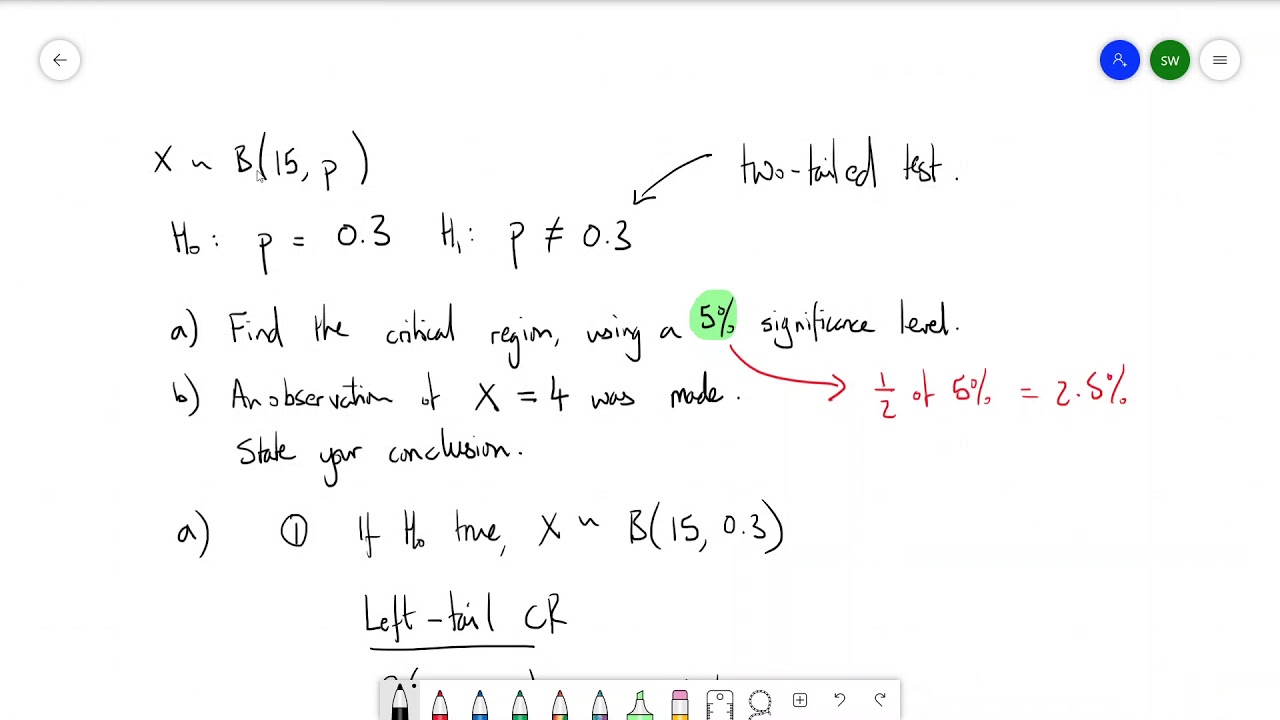 SW
X ~ B(15, p)
two-tailed test.
H₀: p = 0.3 H₁: p ≠ 0.3
a) Find the critical region, using a 5% significance level.
½ of 5% = 2.5%
b) An observation of X = 4 was made.
State your conclusion.
a) ① If H₀ true, X ~ B(15, 0.3)
Left-tail CR